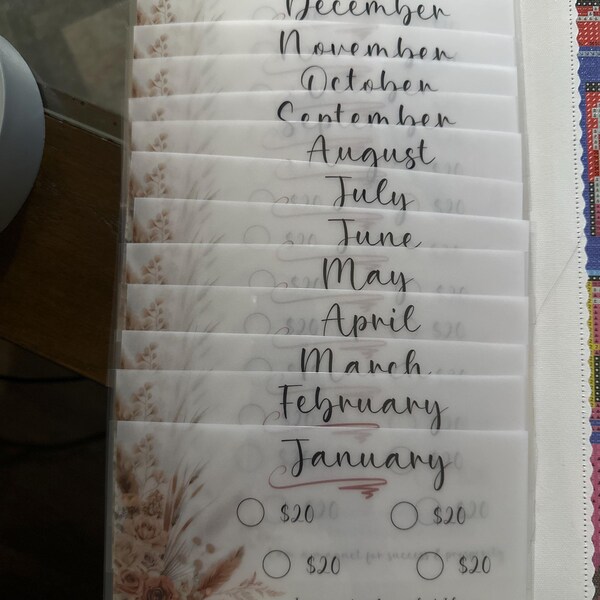 December
November
October
September
August
July
June
$20
May
April
$20
March
February
January
$20 $20
$20 $20